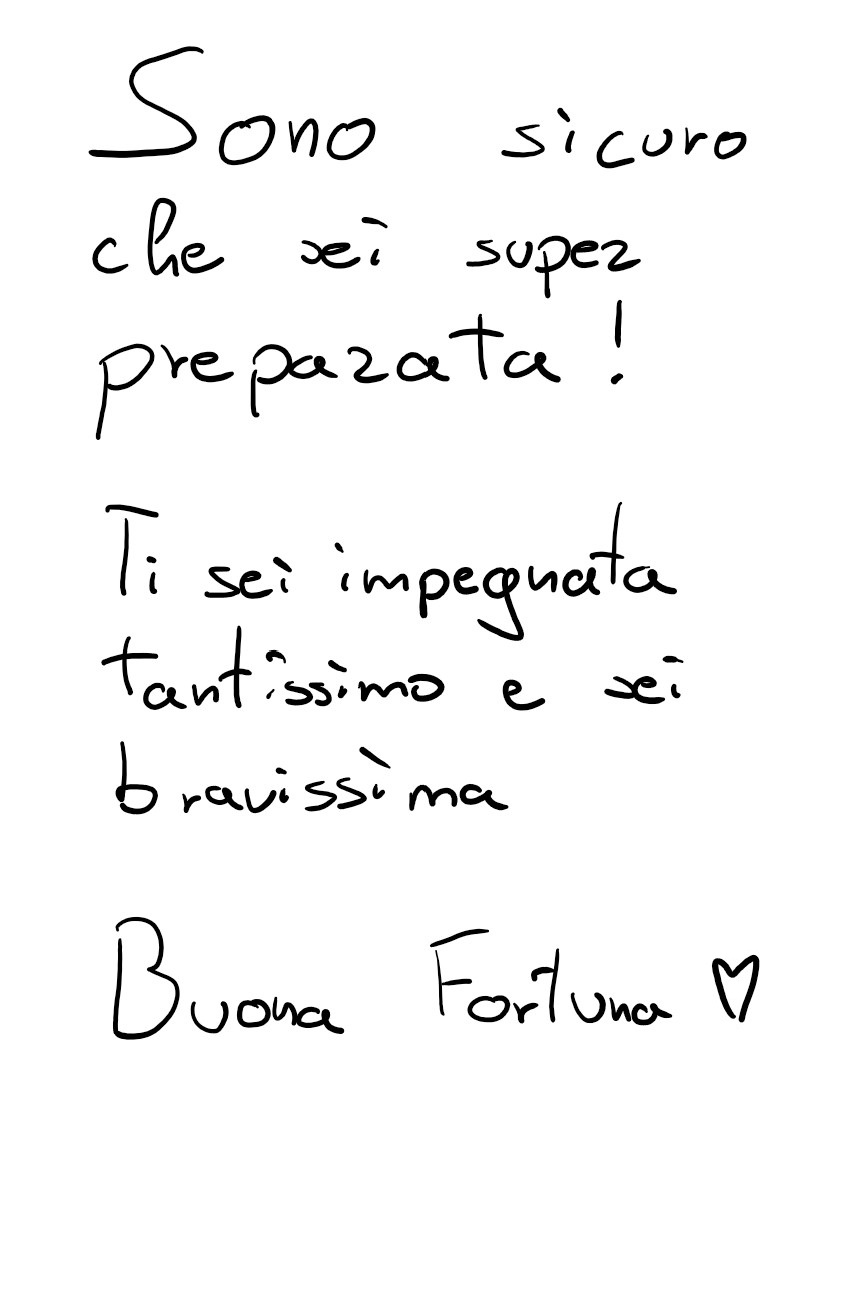 Sono sicuro
che sei super
preparata!
Ti sei impegnata
tantissimo e sei
bravissima
Buona Fortuna ♡